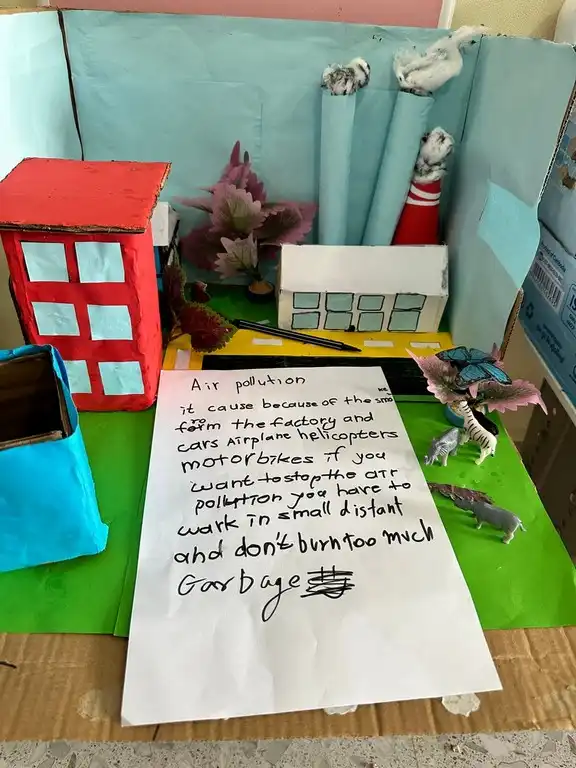 Air pollution
it cause because of the smo
ke
from the factory and
cars Airplane helicopters
motorbikes if you
want to stop the air
pollution you have to
wark in small distant
and don't burn too much
Garbage